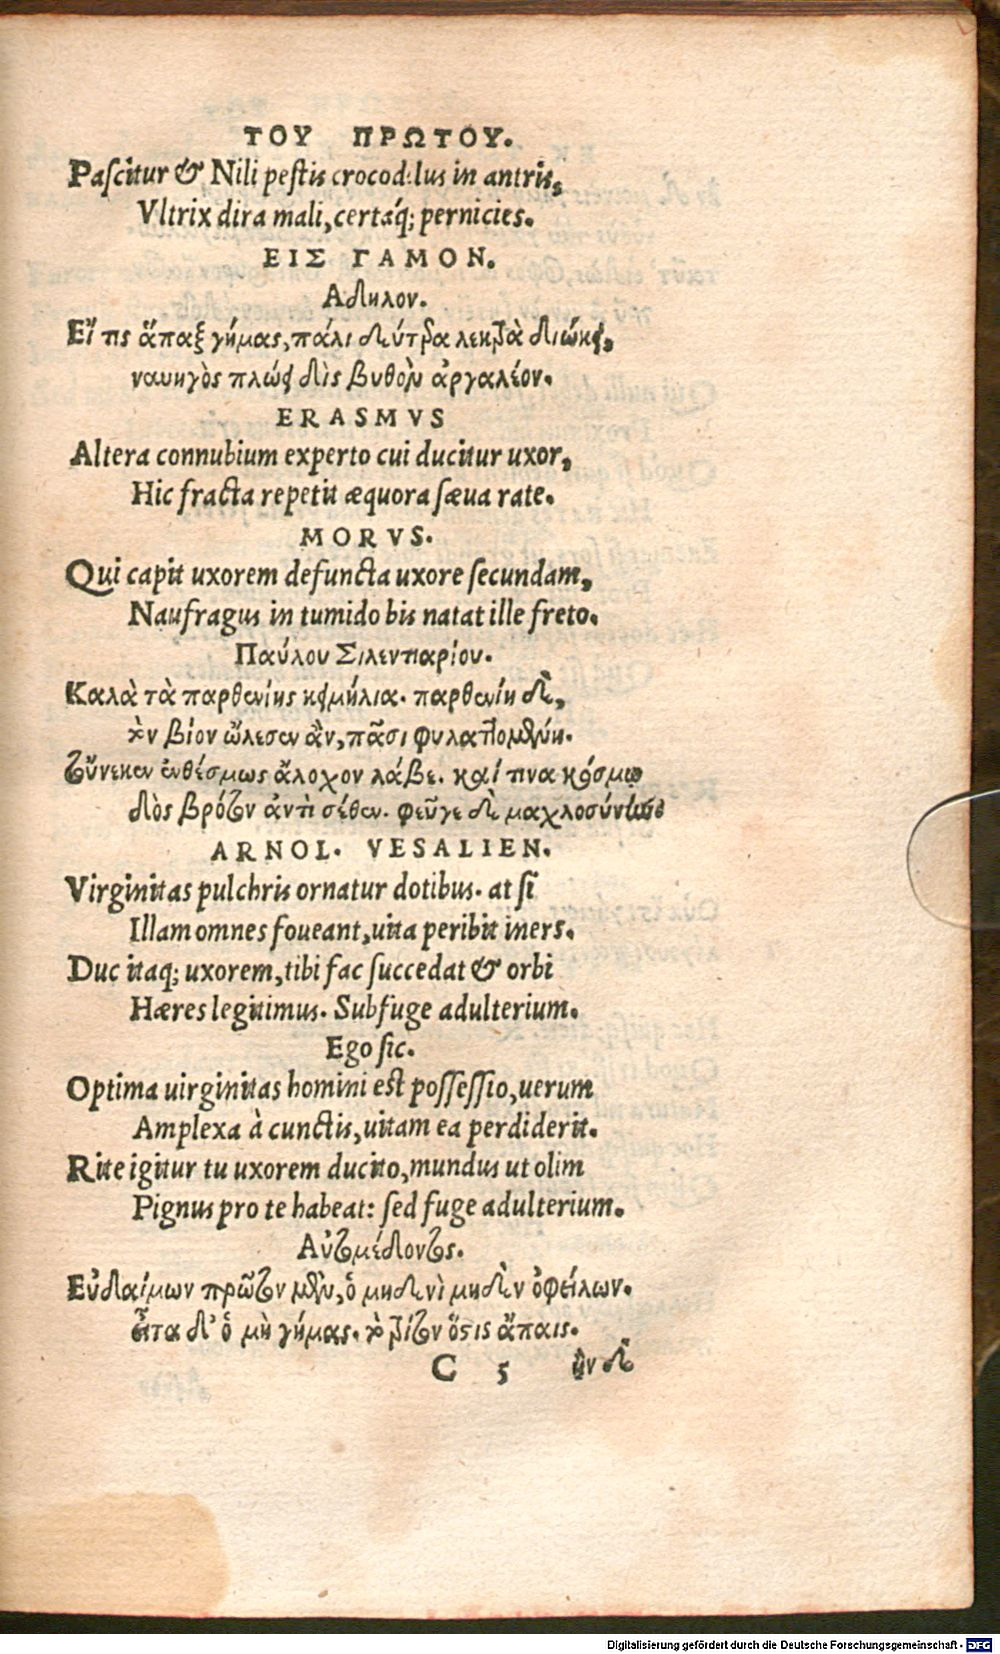 ΤΟΥ ΠΡΩΤΟΥ.
Paſcitur & Nili peſtis crocod:lus in antris,
Vltrix dira mali, certáq; pernicies.
ΕΙΣ ΓΑΜΟΝ.
Αδηλον.
Εἴ τις ἅπαξ γήμας, πάλι δεύτερα λεκτρὰ διώκει,
ναυηγὸς πλώει δὶς βυθὸν ἀργαλέον.
ERASMVS
Altera connubium experto cui ducitur uxor,
Hic fracta repetit æquora ſæua rate.
MORVS.
Qui capit uxorem defuncta uxore ſecundam,
Naufragus in tumido bis natat ille freto.
Παύλου Σιλεντιαρίου.
Καλὰ τὰ παρθενίης κειμήλια. παρθενίη δὲ,
τὸν βίον ὤλεσεν ἂν, πᾶσι φυλαττομένη.
Τοὔνεκεν ἐνθέσμως ἄλοχον λάβε. καί τινα κόσμῳ
δὸς βρότον ἀντὶ σέθεν. φεῦγε δὲ μαχλοσύνην
ARNOL. VESALIEN.
Virginitas pulchris ornatur dotibus. at ſi
Illam omnes foueant, uita peribit iners.
Duc itaq; uxorem, tibi fac ſuccedat & orbi
Hæres legitimus. Subfuge adulterium.
Ego ſic.
Optima uirginitas homini eſt poſſeſſio, uerum
Amplexa à cunctis, uitam ea perdiderit.
Rite igitur tu uxorem ducito, mundus ut olim
Pignus pro te habeat: ſed fuge adulterium.
Αὐτομέδοντος.
Εὐδαίμων πρῶτον μὲν, ὁ μηδενὶ μηδὲν ὀφείλων.
εἶτα δ' ὁ μὴ γήμας. τὸ τρίτον ὅστις ἄπαις.
C 5 ἢν δὲ
Digitalisierung gefördert durch die Deutsche Forschungsgemeinschaft - DFG